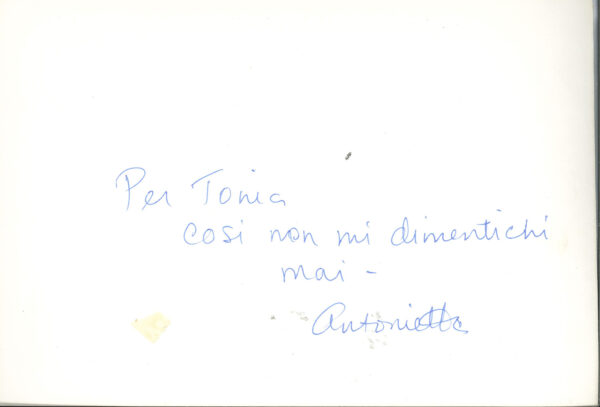 Per Tonia
cosi non mi dimentichi
mai -
Antonietta